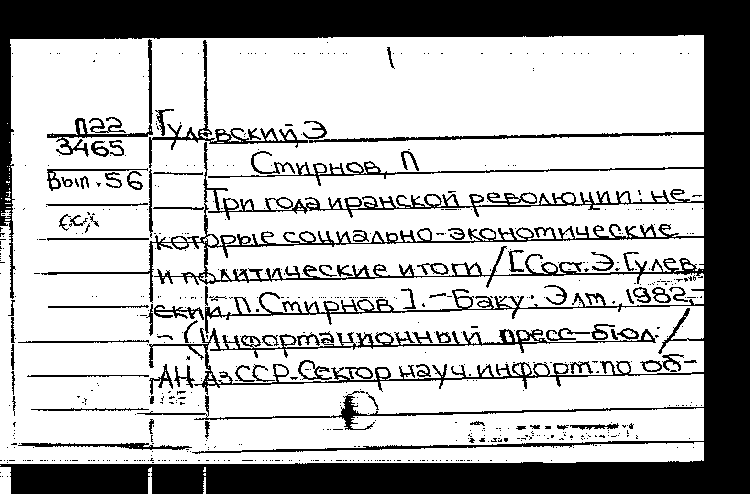 П22
3465
Вып. 56
Гулевский, Э
Стирнов, П
Три года иранской революции: не-
которые социально-эконотические
и политические итоги / [Сост. Э. Гулев-
ский, П. Стирнов]. - Баку: Элт., 1982.-
- (Инфортационный пресс-бюл. /
АН АзССР. Сектор науч. инфорт. по об-